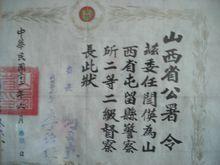 山西省公署令
茲委任閻俟為山
西省屯留縣警察
所二等二級督察
長此狀
中華民國十 年六月 日